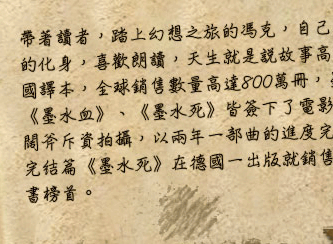 帶著讀者，踏上幻想之旅的馮克，自己
的化身，喜歡朗讀，天生就是說故事高
國譯本，全球銷售數量高達800萬冊，
《墨水血》、《墨水死》皆簽下了電影
闊斧斥資拍攝，以兩年一部曲的進度完
完結篇《墨水死》在德國一出版就銷售
書榜首。